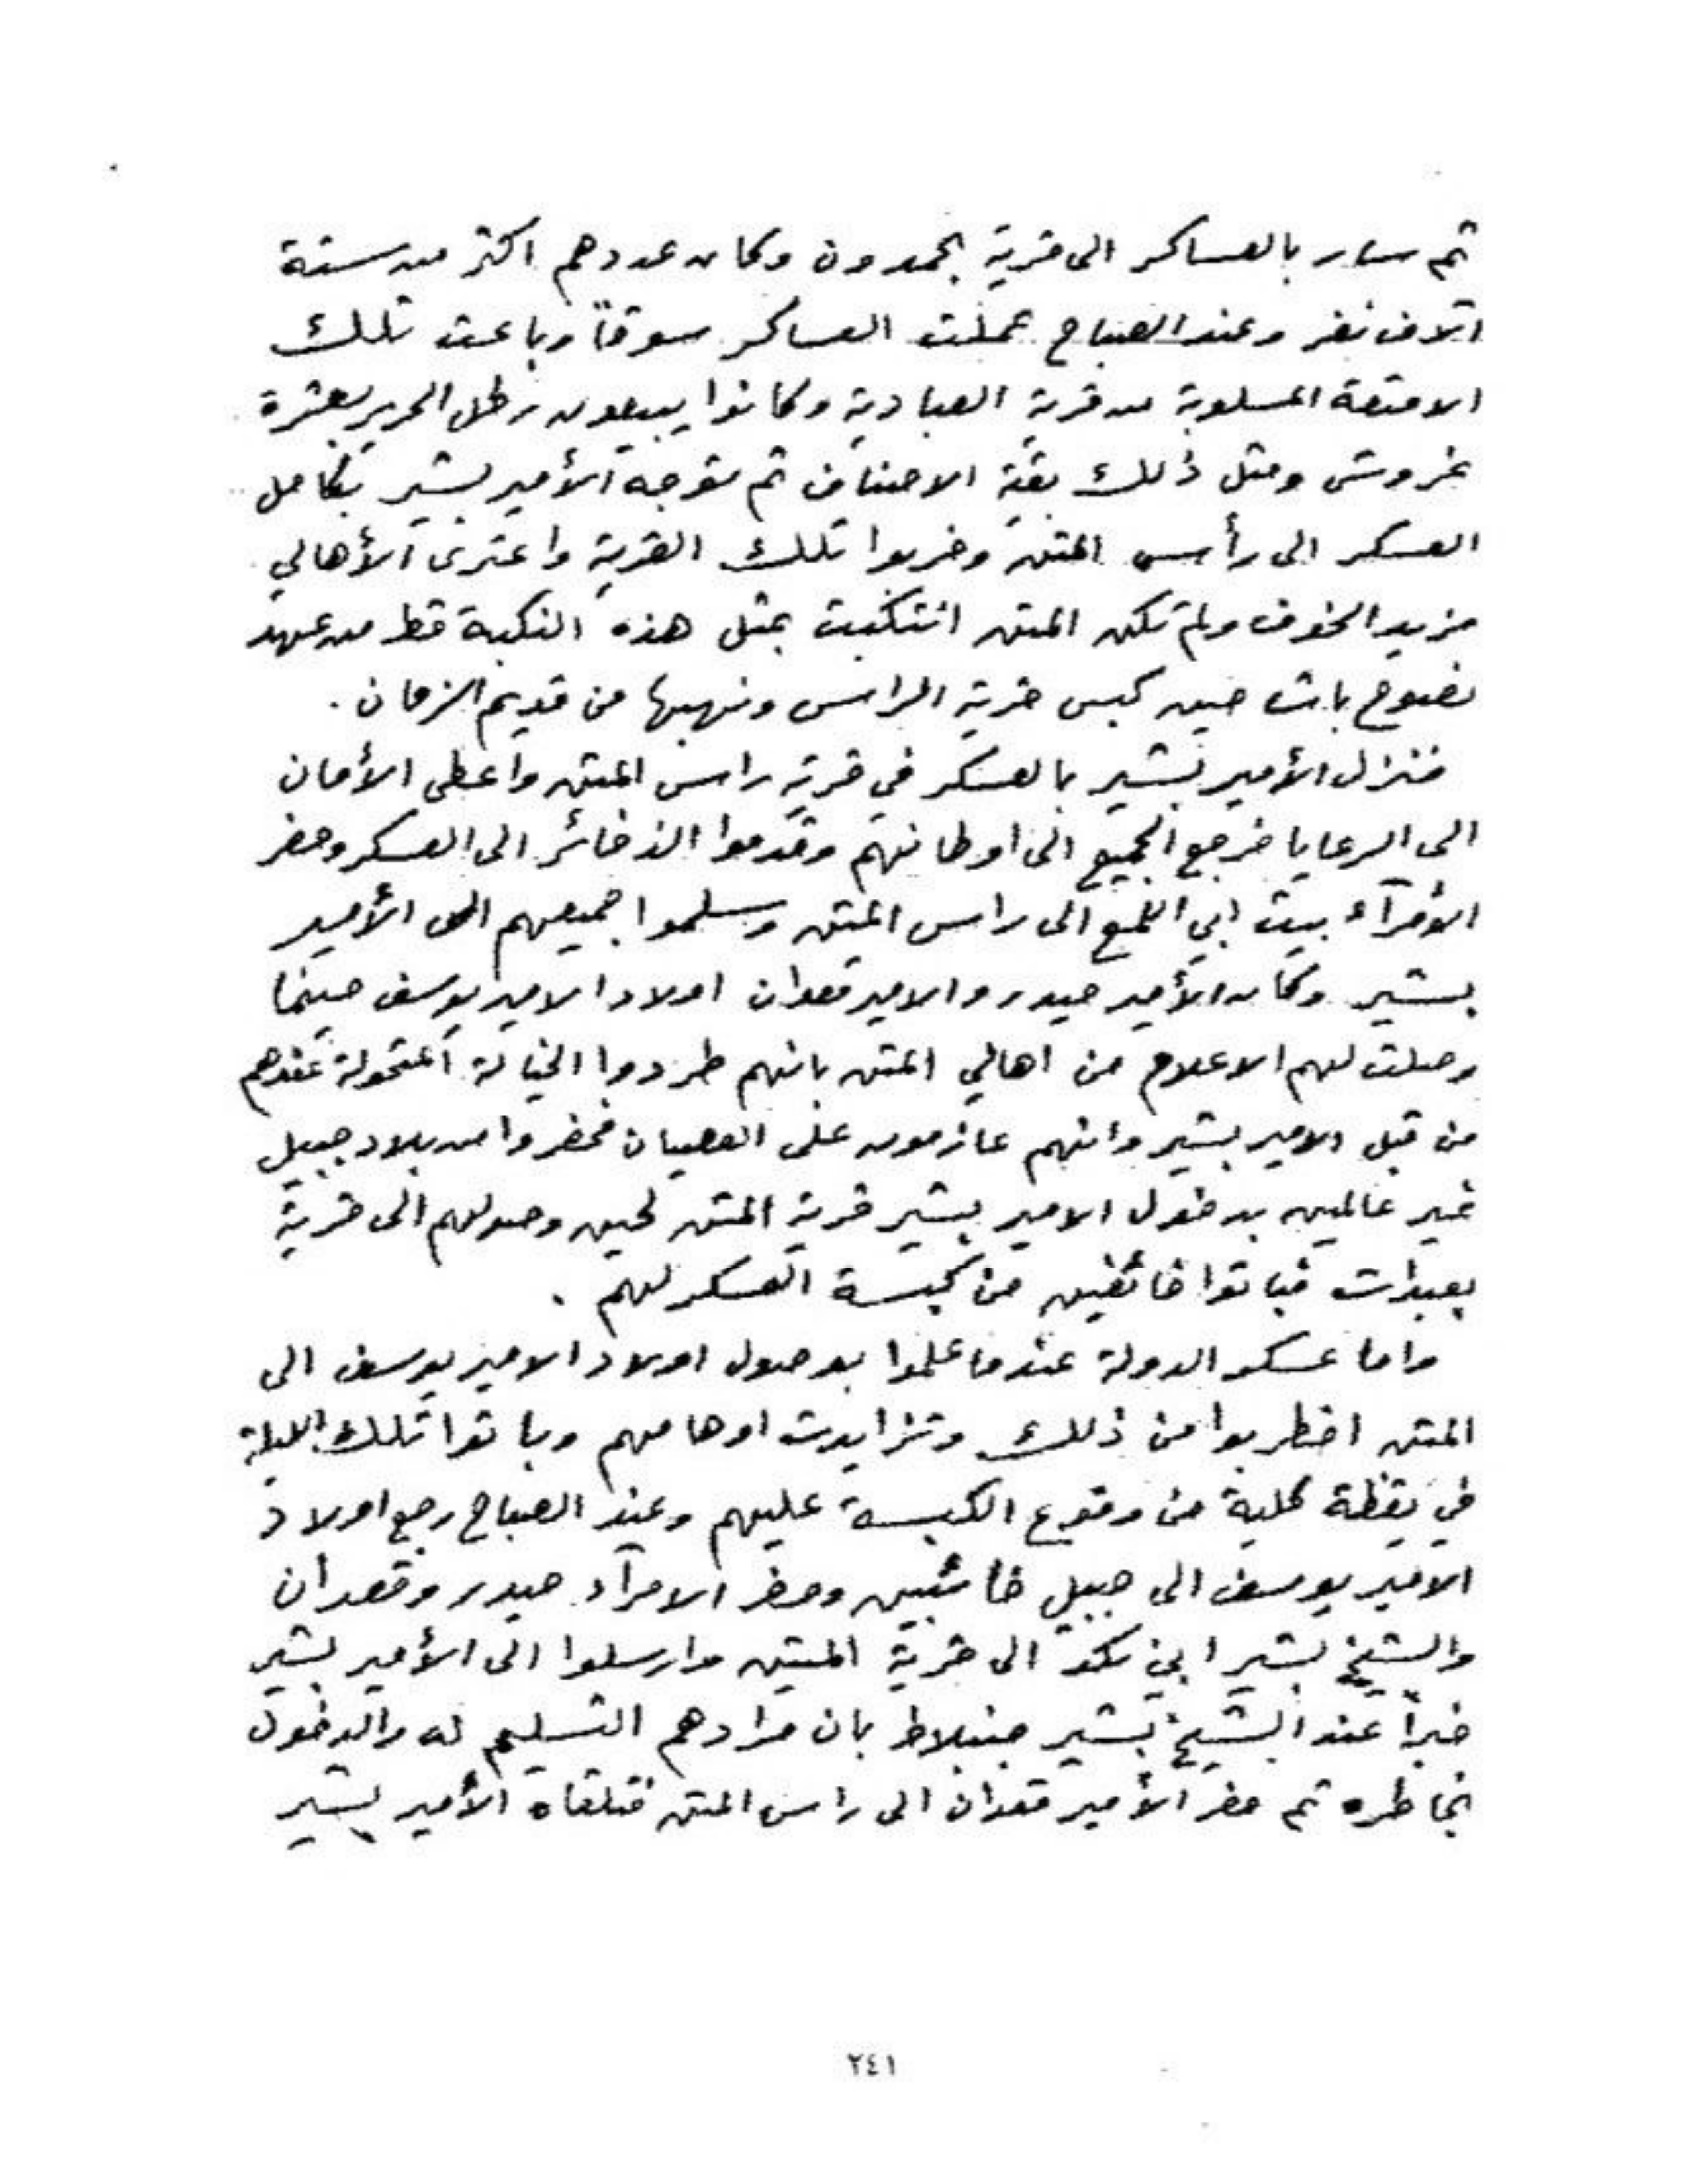 ثم سار بالعساكر الى قرية بحمدون وكان عددهم اكثر من ستة
آلاف نفر وعند الصباح عملت العساكر سوقاً وباعت تلك
الامتعة المسلوبة من قرية العبادية وكانوا يبيعون رطل الحرير بعشرة
غروش ومثل ذلك بقية الاصناف ثم توجه الأمير بشير بكامل
العسكر الى رأس المتن وخربوا تلك القرية واعترى الأهالي
مزيد الخوف ولم تكن المتن انتكبت بمثل هذه النكبة قط من عهد
نصوح باشا حين كبس قرية الراس ونهبها من قديم الزمان .
فنزل الأمير بشير بالعسكر في قرية راس المتن واعطى الأمان
الى الرعايا فرجع الجميع الى اوطانهم وقدموا الذخائر الى العسكر وحضر
الأمرآء بيت ابي اللمع الى راس المتن وسلموا جميعهم الى الأمير
بشير وكان الأمير حيدر والامير قعدان اولاد الامير يوسف حينما
وصلت لهم الاعلام من اهالي المتن بانهم طردوا الخيالة المتحولة عندهم
من قبل الامير بشير وانهم عازمون على العصيان فحضروا من بلاد جبيل
غير عالمين بدخول الامير بشير قرية المتن لحين وصولهم الى قرية
بعبدات فباتوا خائفين من كبسة العسكر لهم .
واما عسكر الدولة عندما علموا بوصول اولاد الامير يوسف الى
المتن اضطربوا من ذلك وتزايدت اوهامهم وباتوا تلك الليلة
في يقظة كلية من وقوع الكبسة عليهم وعند الصباح رجع اولاد
الامير يوسف الى جبيل خائبين وحضر الامرآء حيدر وقعدان
والشيخ بشير ابي نكد الى قرية المتين وارسلوا الى الأمير بشير
خبراً عند الشيخ بشير جنبلاط بان مرادهم التسليم له والدخول
بخاطره ثم حضر الأمير قعدان الى راس المتن فتلقاه الأمير بشير
٢٤١